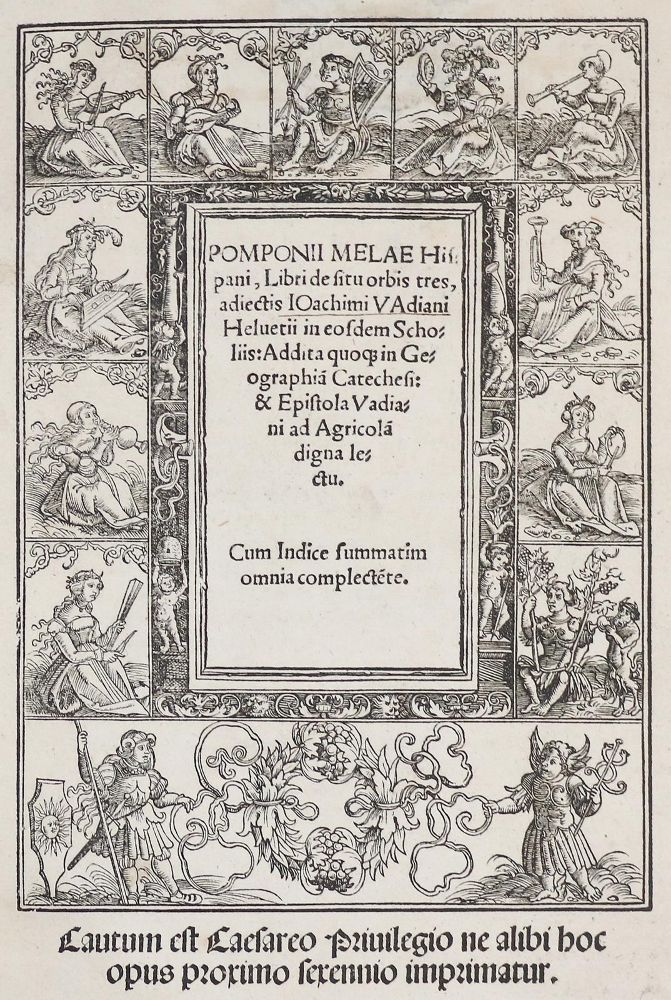 POMPONII MELAE His⸗
pani, Libri de ſitu orbis tres,
adiectis IOachimi VAdiani
Heluetii in eoſdem Scho⸗
liis: Addita quoqꝫ in Ge⸗
ographiā Catecheſi:
& Epiſtola Vadia⸗
ni ad Agricolā
digna le⸗
ctu.
Cum Indice ſummatim
omnia complectēte.
Cautum eſt Caeſareo Priuilegio ne alibi hoc
opus proximo ſexennio imprimatur.